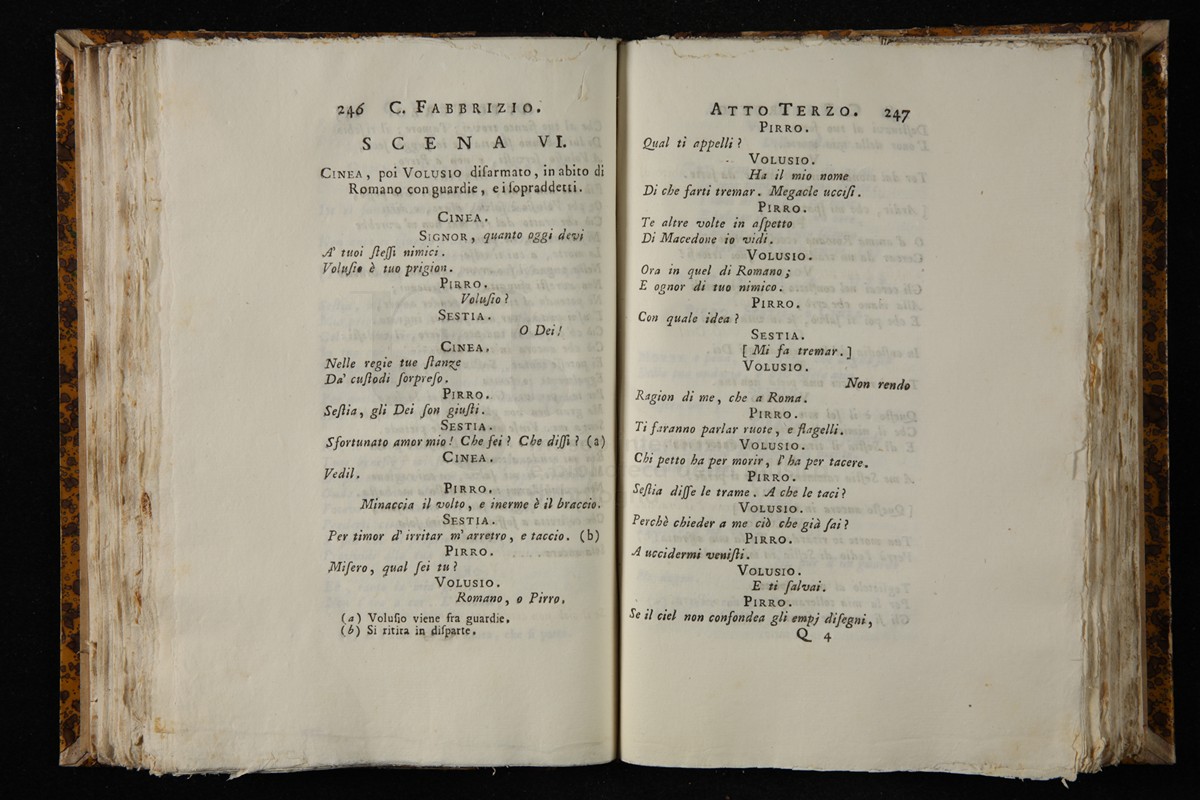 246 C. FABBRIZIO.
SCENA VI.
CINEA, poi VOLUSIO diſarmato, in abito di
Romano con guardie, e i ſopraddetti.
CINEA.
SIGNOR, quanto oggi devi
A' tuoi ſteſſi nimici.
Voluſio è tuo prigion.
PIRRO.
Voluſio?
SESTIA.
O Dei!
CINEA.
Nelle regie tue ſtanze
Da' cuſtodi ſorpreſo.
PIRRO.
Seſtia, gli Dei ſon giuſti.
SESTIA.
Sfortunato amor mio! Che fei? Che diſſi? (a)
CINEA.
Vedil.
PIRRO.
Minaccia il volto, e inerme è il braccio.
SESTIA.
Per timor d'irritar m'arretro, e taccio. (b)
PIRRO.
Miſero, qual ſei tu?
VOLUSIO.
Romano, o Pirro.
(a) Voluſio viene fra guardie.
(b) Si ritira in diſparte.
ATTO TERZO. 247
PIRRO.
Qual ti appelli?
VOLUSIO.
Ha il mio nome
Di che farti tremar. Megacle ucciſi.
PIRRO.
Te altre volte in aſpetto
Di Macedone io vidi.
VOLUSIO.
Ora in quel di Romano;
E ognor di tuo nimico.
PIRRO.
Con quale idea?
SESTIA.
[ Mi fa tremar. ]
VOLUSIO.
Non rendo
Ragion di me, che a Roma.
PIRRO.
Ti faranno parlar ruote, e flagelli.
VOLUSIO.
Chi petto ha per morir, l'ha per tacere.
PIRRO.
Seſtia diſſe le trame. A che le taci?
VOLUSIO.
Perchè chieder a me ciò che già ſai?
PIRRO.
A uccidermi veniſti.
VOLUSIO.
E ti ſalvai.
PIRRO.
Se il ciel non confondea gli empj diſegni,
Q 4